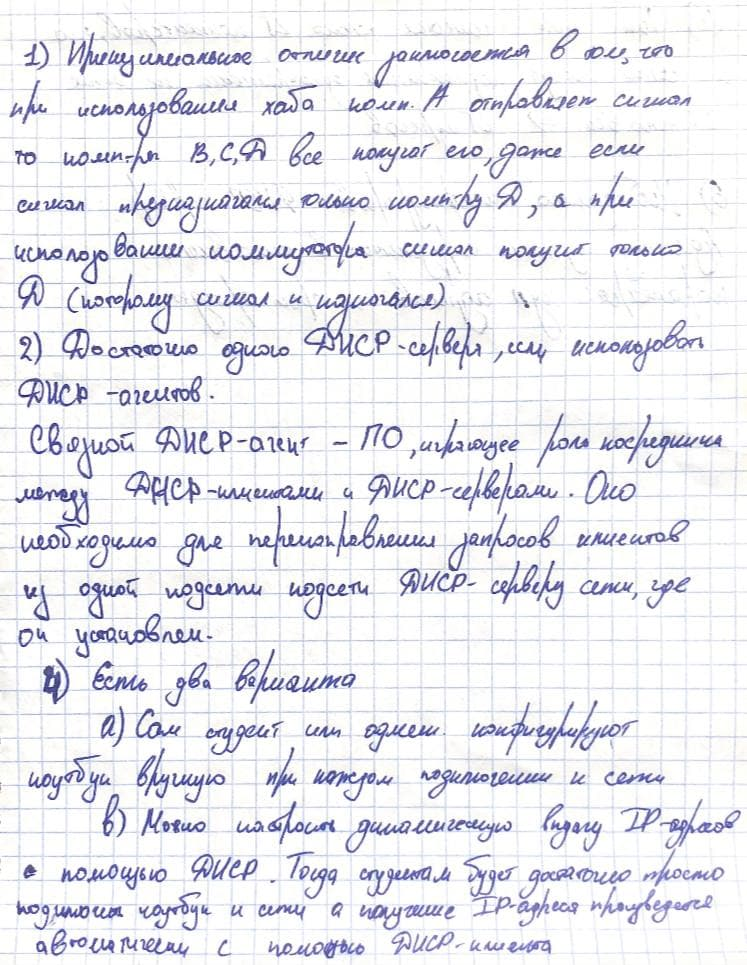 1) Принципиальное отличие заключается в том, что
при использовании хаба комп. А отправляет сигнал
то комп-ры В, С, D все получат его, даже если
сигнал предназначался только комп-ру D, а при
использовании коммутатора сигнал получит только
D (которому сигнал и предназначался)
2) Достаточно одного DHCP-сервера, если использовать
DHCP-агентов.
Связной DHCP-агент – ПО, играющее роль посредника
между DHCP-клиентами и DHCP-серверами. Оно
необходимо для перенаправления запросов клиентов
из одной подсети подсети DHCP-серверу сети, где
он установлен.
4) Есть два варианта
а) Сам студент или админ. конфигурируют
ноутбук вручную при каждом подключении к сети
в) Можно настроить динамическую выдачу IP-адресов
с помощью DHCP. Тогда студентам будет достаточно просто
подключить ноутбук к сети а получение IP-адреса произведется
автоматически с помощью DHCP-клиента